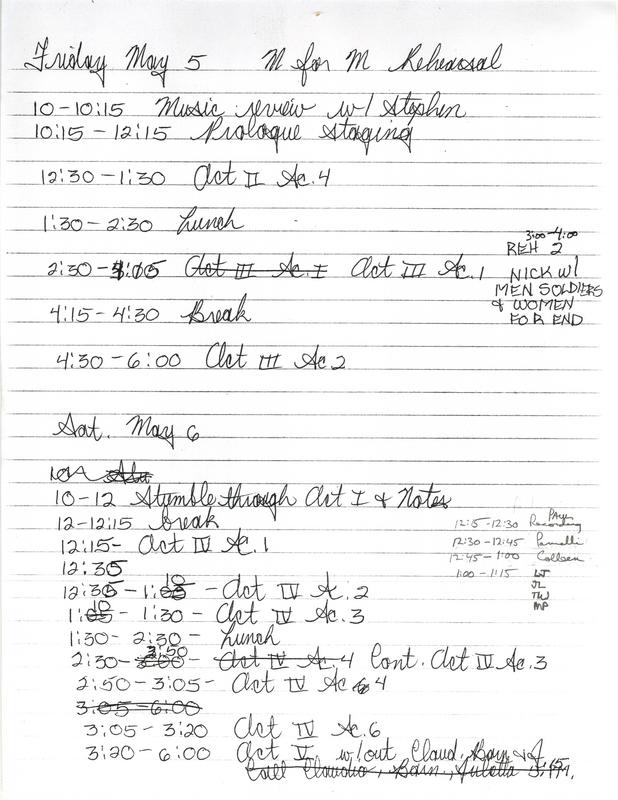 Friday May 5 M for M Rehearsal
10-10:15 Music review w/ Stephen
10:15 - 12:15 Prologue staging
12:30 - 1:30 Act II Sc. 4
1:30 - 2:30 Lunch
3:00-4:00
REH 2
2:30 - :05 Act III Sc. I Act III Sc. 1
NICK W/
MEN SOLDIERS
& WOMEN
FOR END
4:15 - 4:30 Break
4:30 - 6:00 Act III Sc 2
Sat. May 6
10-12 Stumble through Act I & Notes
12 - 12:15 break
12:15- Act IV Sc. 1
12:35
12:35 - 1:10 - Act IV Sc. 2
1:10 - 1:30 - Act IV Sc. 3
1:30 - 2:30 - Lunch
2:30 - 3:00 2:50 - Act IV Sc. 4 Cont. Act IV Sc. 3
2:50 - 3:05 - Act IV Sc 4
3:05 - 6:00
3:05 - 3:20 Act IV Sc. 6
3:20 - 6:00 Act V w/out Claud, Barn & J
Call Claudio, Barn., Julietta
12:15 - 12:30 Recording
12:30 - 12:45
12:45 - 1:00 Colleen
1:00 - 1:15 LJ
JL
TW
MP